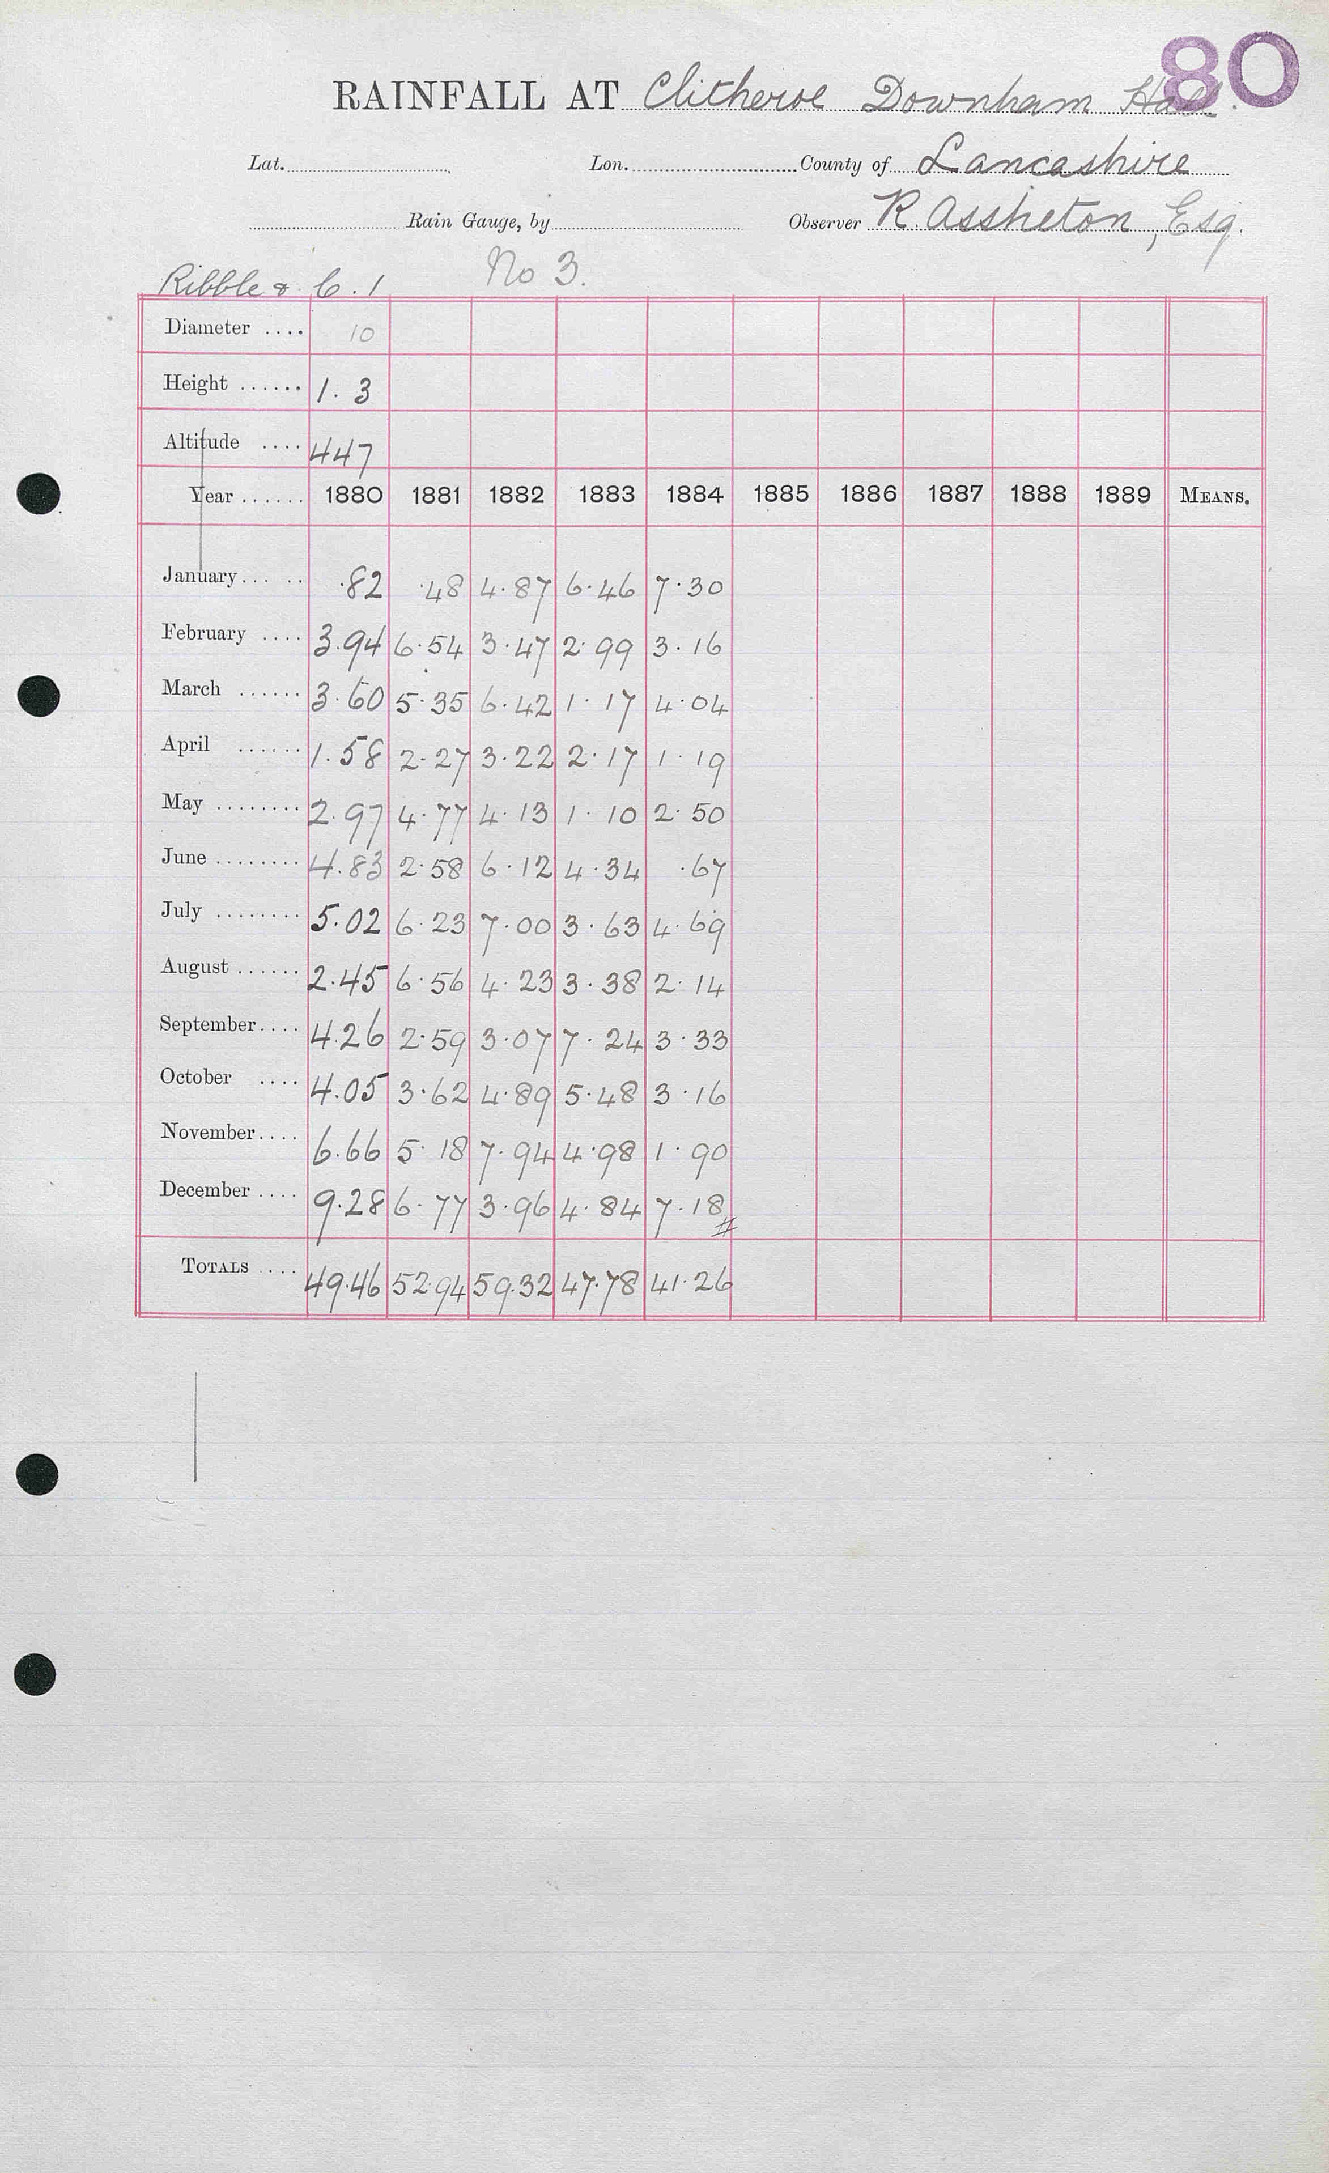 80
RAINFALL AT Clitheroe Downham Hall.
Lat. Lon. County of Lancashire
Rain Gauge, by Observer R. Assheton, Esq.
Ribble & C. 1 No 3.
Diameter .... 10
Height ...... 1. 3
Altitude .... 447
Year ...... 1880 1881 1882 1883 1884 1885 1886 1887 1888 1889 MEANS.
January... .. .82 .48 4.87 6.46 7.30
February .... 3.94 6.54 3.47 2.99 3.16
March ...... 3.60 5.35 6.42 1.17 4.04
April ...... 1.58 2.27 3.22 2.17 1.19
May ........ 2.97 4.77 4.13 1.10 2.50
June ........ 4.83 2.58 6.12 4.34 .67
July ........ 5.02 6.23 7.00 3.63 4.69
August ...... 2.45 6.56 4.23 3.38 2.14
September.... 4.26 2.59 3.07 7.24 3.33
October .... 4.05 3.62 4.89 5.48 3.16
November.... 6.66 5.18 7.94 4.98 1.90
December .... 9.28 6.77 3.96 4.84 7.18
TOTALS .... 49.46 52.94 59.32 47.78 41.26